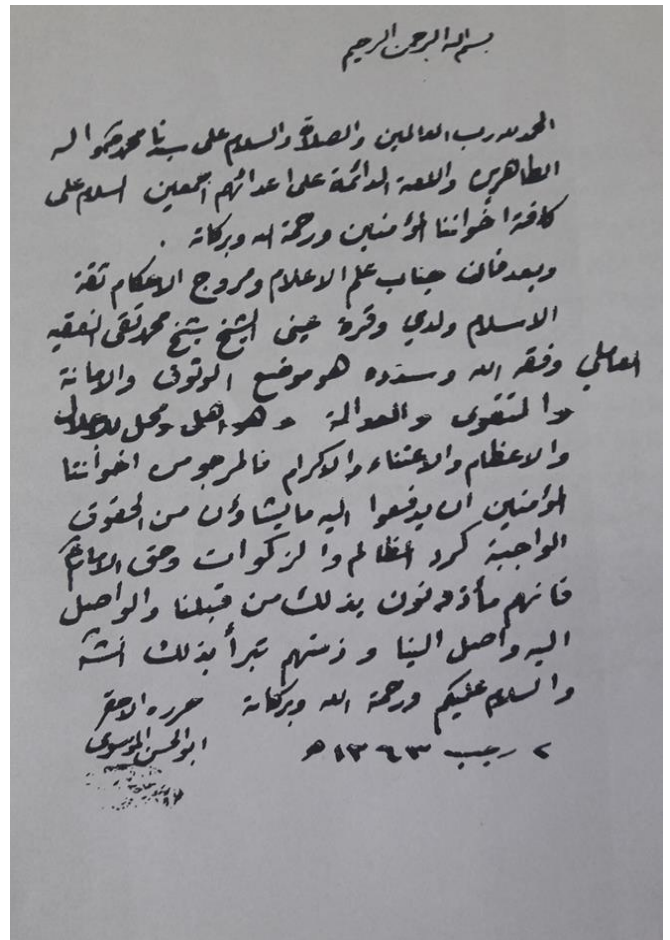 بسم الله الرحمن الرحيم
الحمد لله رب العالمين والصلاة والسلام على سيدنا محمد واله
الطاهرين واللعنة الدائمة على اعدائهم اجمعين السلام على
كافة اخواننا المؤمنين ورحمة الله وبركاته .
وبعد فان جناب علم الاعلام ومروج الاحكام ثقة
الاسلام ولدي وقرة عيني الشيخ شيخ محمد تقي الفقيه
العاملي وفقه الله وسدده هو موضع الوثوق والامانة
والتقوى والعدالة وهو اهل ومحل للاجلال
والاعظام والاعتناء والاكرام فالمرجو من اخواننا
المؤمنين ان يدفعوا اليه ما يشاؤن من الحقوق
الواجبة كرد المظالم والزكوات وحق الامام
فانهم مأذونون بذلك من قبلنا والواصل
اليه واصل الينا وذمتهم تبرأ بذلك انشه
والسلام عليكم ورحمة الله وبركاته حرره الاحقر
٢ رجب ١٣٦٣ هـ ابو الحسن الموسوي